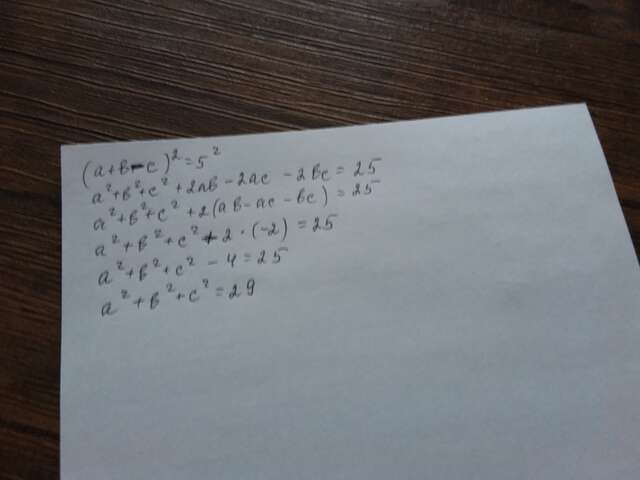 (a+b-c)²=5²
a²+b²+c²+2ab-2ac-2bc=25
a²+b²+c²+2(ab-ac-bc)=25
a²+b²+c²+2·(-2)=25
a²+b²+c²-4=25
a²+b²+c²=29